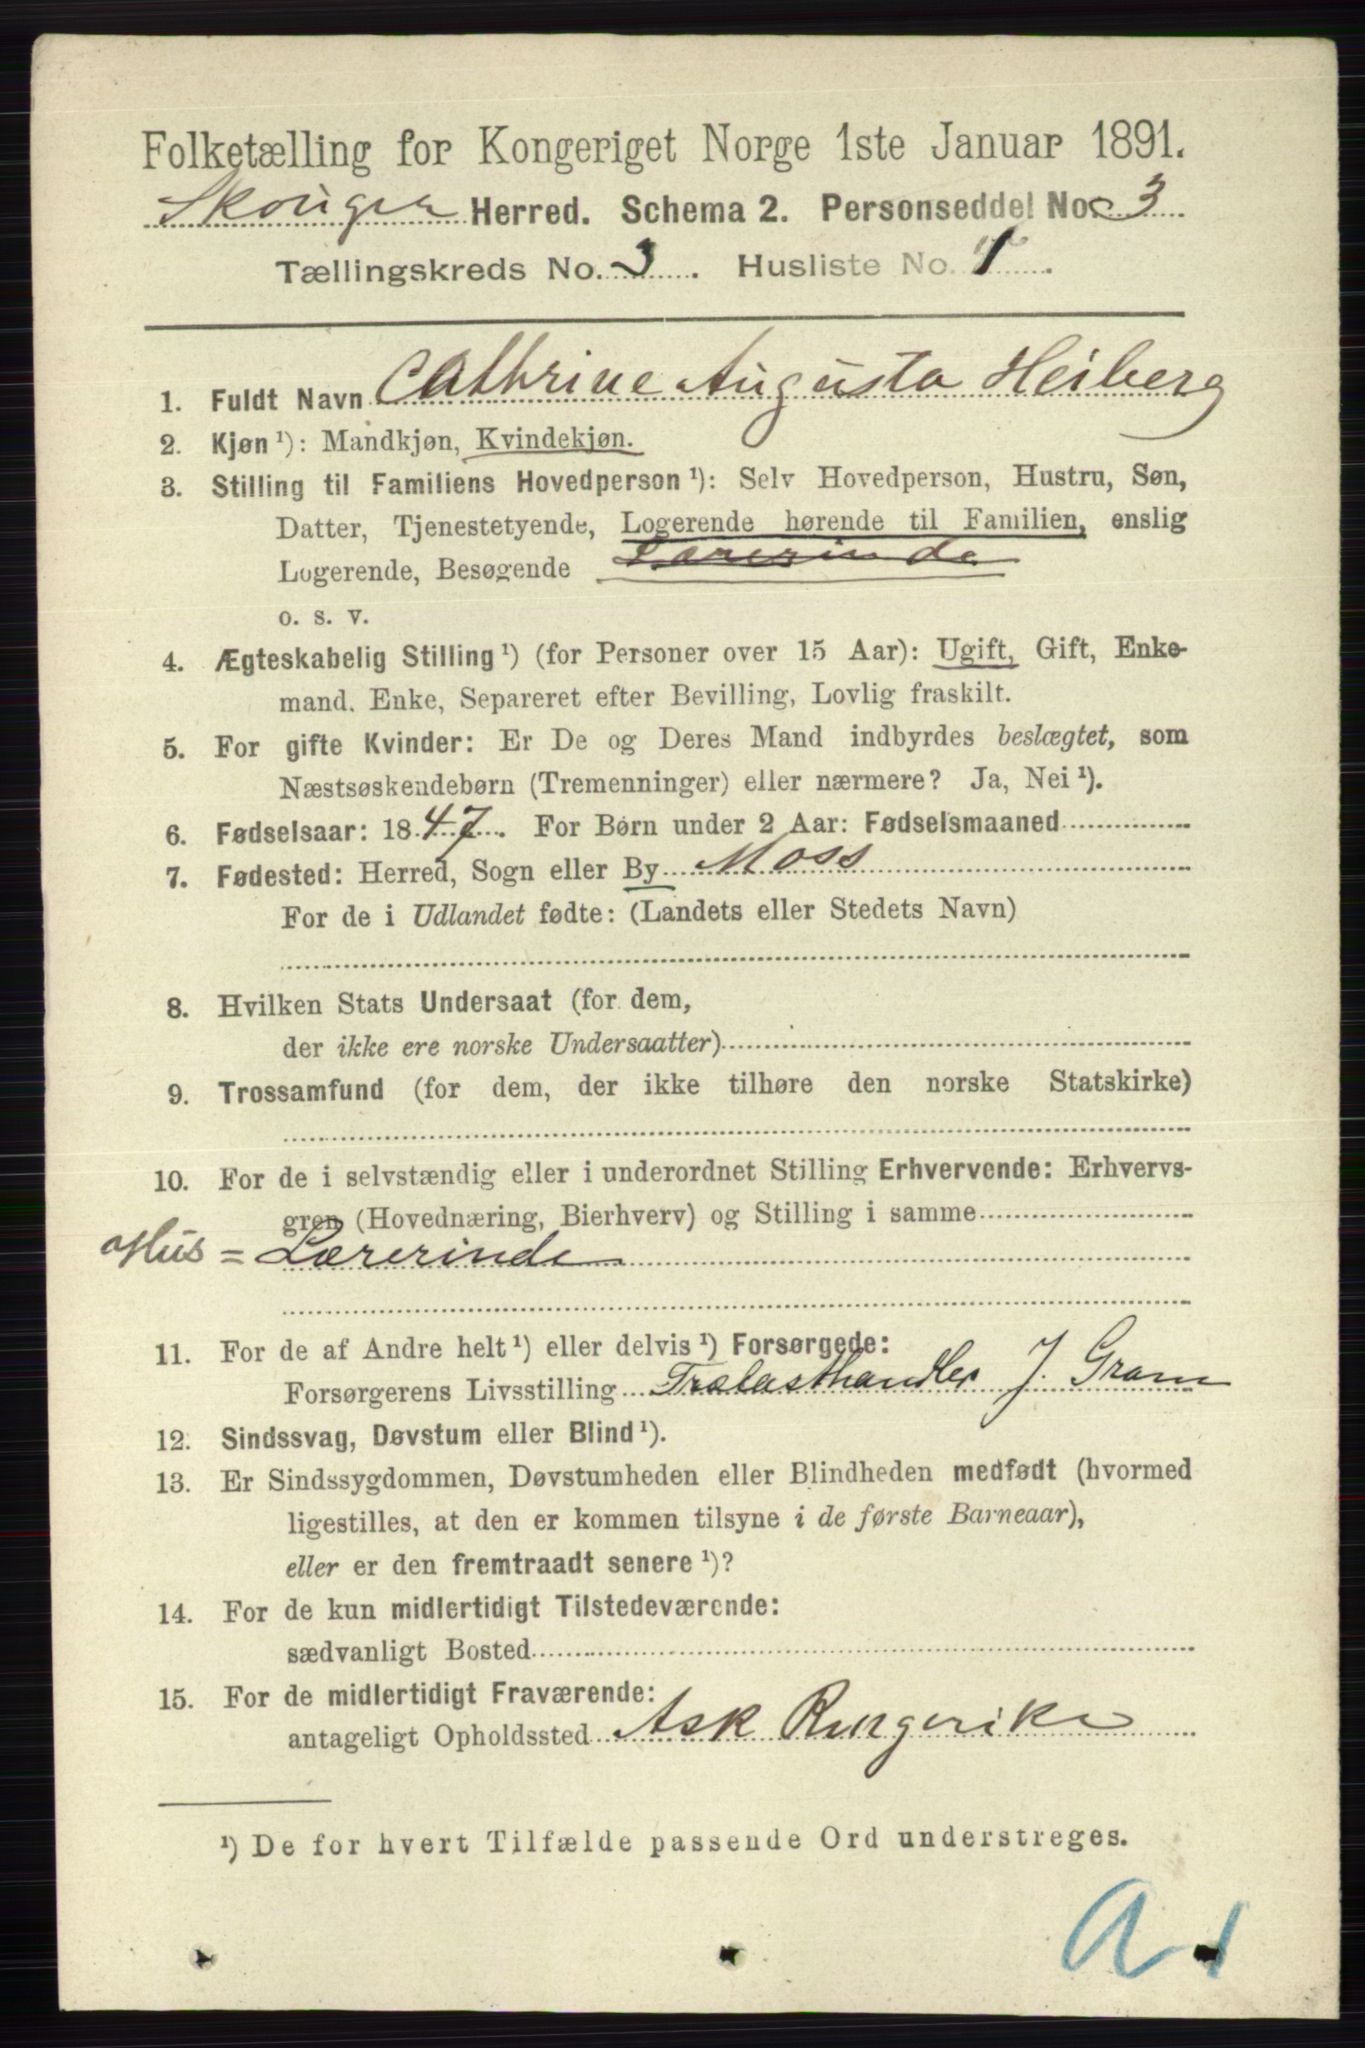 Folketælling for Kongeriget Norge 1ste Januar 1891.
Skouger Herred. Schema 2. Personseddel No. 3
Tællingskreds No. 3. Husliste No. 1.
1. Fuldt Navn Cathrine Augusta Heiberg
2. Kjøn ¹): Mandkjøn, Kvindekjøn.
3. Stilling til Familiens Hovedperson ¹): Selv Hovedperson, Hustru, Søn,
Datter, Tjenestetyende, Logerende hørende til Familien, enslig
Logerende, Besøgende Lærerinde
o. s. v.
4. Ægteskabelig Stilling ¹) (for Personer over 15 Aar): Ugift, Gift, Enke-
mand. Enke, Separeret efter Bevilling, Lovlig fraskilt.
5. For gifte Kvinder: Er De og Deres Mand indbyrdes beslægtet, som
Næstsøskendebørn (Tremenninger) eller nærmere? Ja, Nei ¹).
6. Fødselsaar: 1847. For Børn under 2 Aar: Fødselsmaaned
7. Fødested: Herred, Sogn eller By Moss
For de i Udlandet fødte: (Landets eller Stedets Navn)
8. Hvilken Stats Undersaat (for dem,
der ikke ere norske Undersaatter)
9. Trossamfund (for dem, der ikke tilhøre den norske Statskirke)
10. For de i selvstændig eller i underordnet Stilling Erhvervende: Erhvervs-
gren (Hovednæring, Bierhverv) og Stilling i samme
Hus = Lærerinde
11. For de af Andre helt ¹) eller delvis ¹) Forsørgede:
Forsørgerens Livsstilling Trælasthandler J. Gram
12. Sindssvag, Døvstum eller Blind ¹).
13. Er Sindssygdommen, Døvstumheden eller Blindheden medfødt (hvormed
ligestilles, at den er kommen tilsyne i de første Barneaar),
eller er den fremtraadt senere ¹)?
14. For de kun midlertidigt Tilstedeværende:
sædvanligt Bosted
15. For de midlertidigt Fraværende:
antageligt Opholdssted Ask Ringerike
¹) De for hvert Tilfælde passende Ord understreges.
A 1